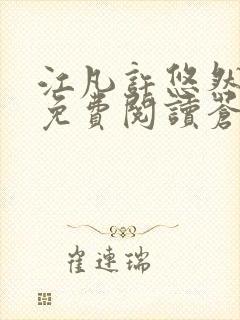 江凡許悠然
免費閱讀蒼
崔連瑞